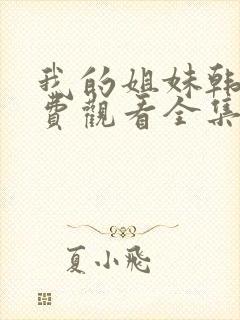 我的姐妹韩
费觀看全集
夏小飛